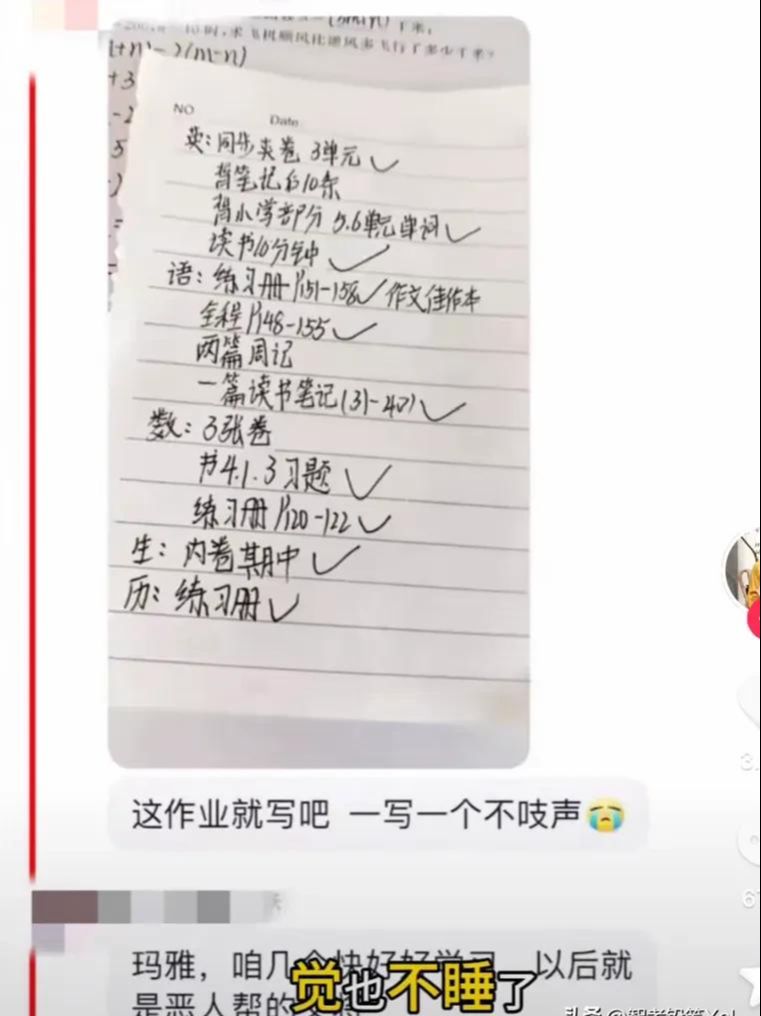 求飞机顺风比逆风多飞行了多少千米?
NO
Date
英:同步夹卷 3单元✓
背笔记后10条
背小学部分 5.6单元单词✓
读书10分钟✓
语:练习册P151-158✓作文佳作本
全程P148-155✓
两篇周记
一篇读书笔记(31-40)✓
数:3张卷
书4.1.3习题✓
练习册P120-122✓
生:内卷期中✓
历:练习册✓
这作业就写吧 一写一个不吱声😭
玛雅,咱几个快好好学习,以后就
是恶人帮的
觉也不睡了